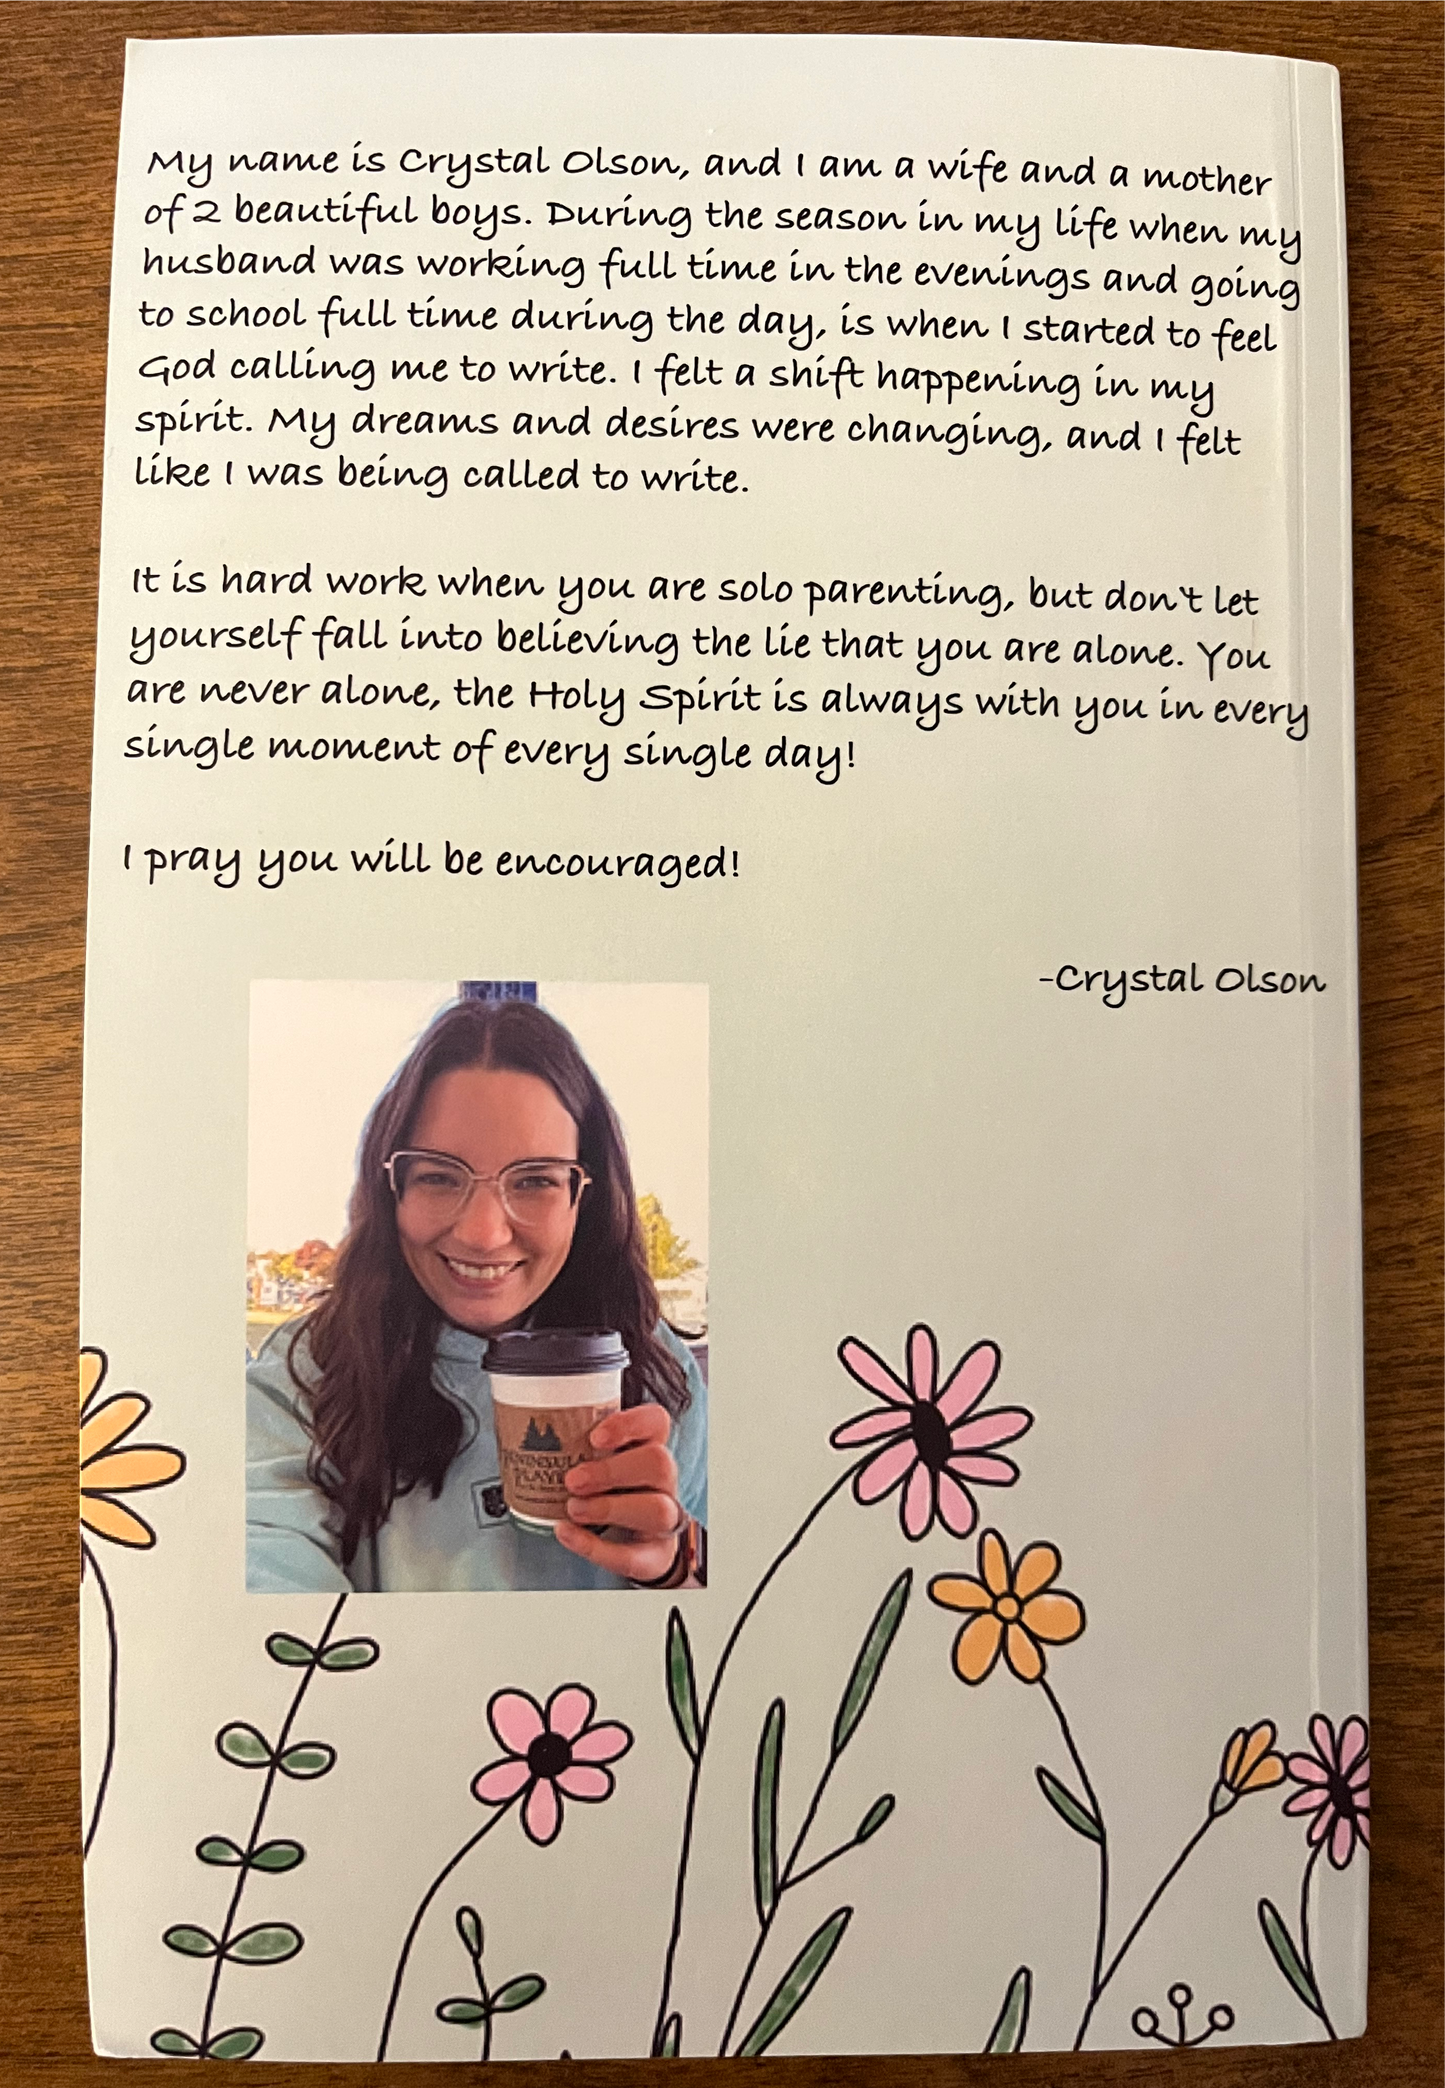 My name is Crystal Olson, and I am a wife and a mother
of 2 beautiful boys. During the season in my life when my
husband was working full time in the evenings and going
to school full time during the day, is when I started to feel
God calling me to write. I felt a shift happening in my
spirit. My dreams and desires were changing, and I felt
like I was being called to write.
It is hard work when you are solo parenting, but don't let
yourself fall into believing the lie that you are alone. You
are never alone, the Holy Spirit is always with you in every
single moment of every single day!
I pray you will be encouraged!
-Crystal Olson
PENINSULA